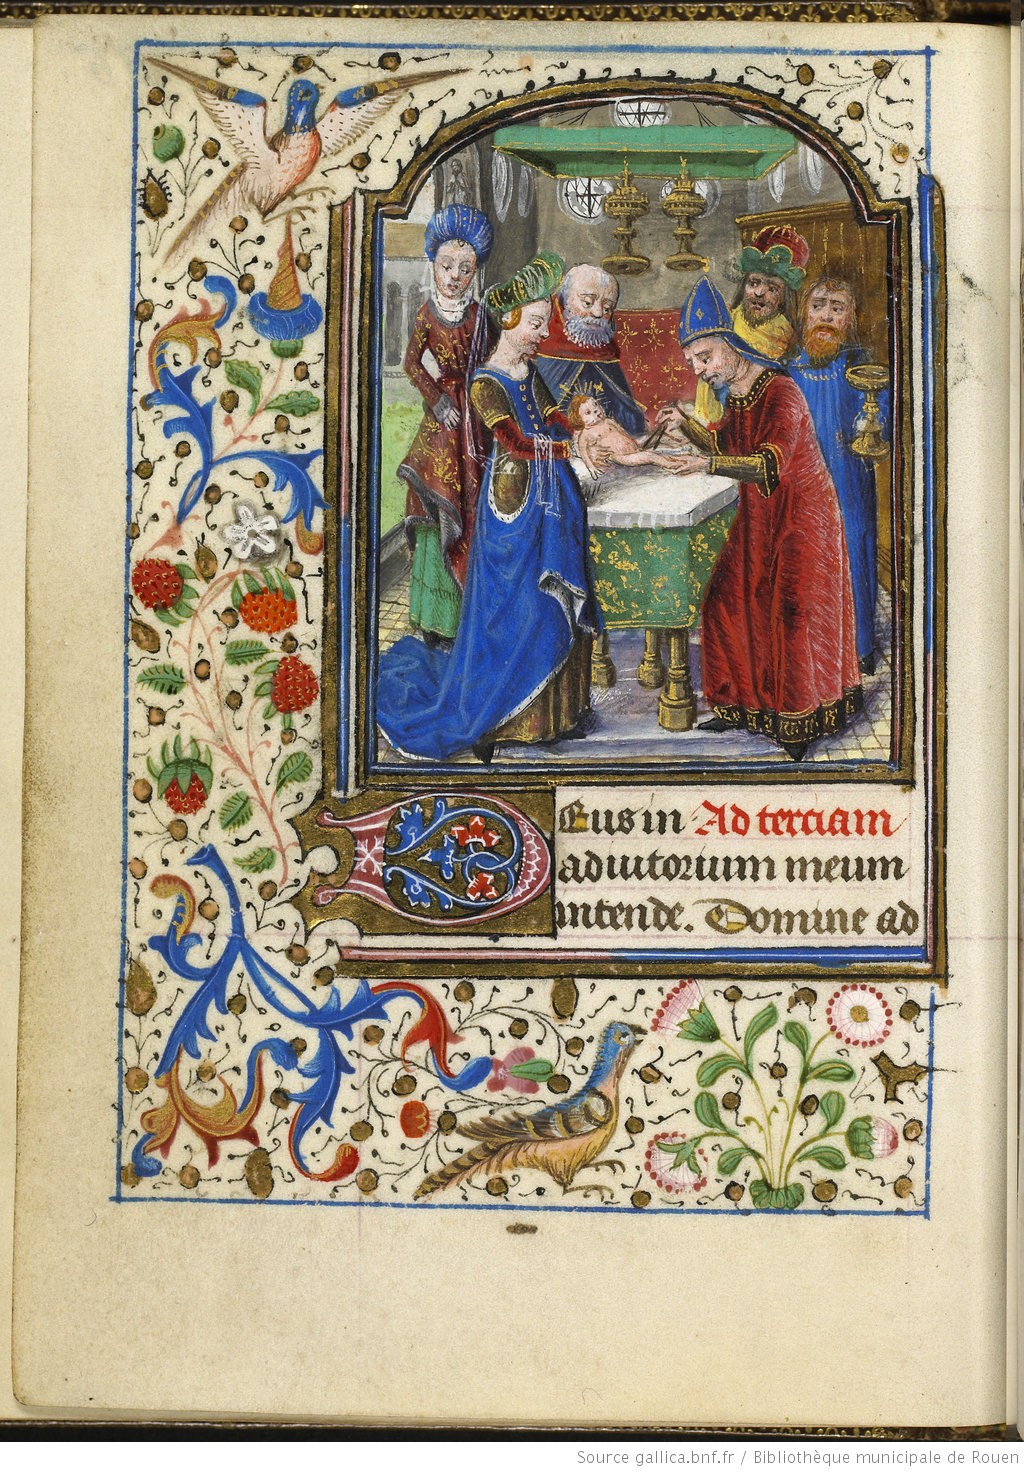 Deus in Ad terciam
adiutorium meum
intende. Domine ad
Source gallica.bnf.fr / Bibliothèque municipale de Rouen